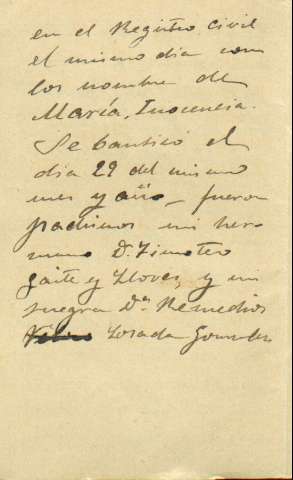 en el Registro civil
el mismo dia con
los nombre de
María, Inocencia.
Se bautisó el
dia 29 del mismo
mes y año, fueron
padrinos mi her-
mano D. Timoteo
Gaite y Lloves, y mi
suegra Dª Remedios
Losada Gonzalez